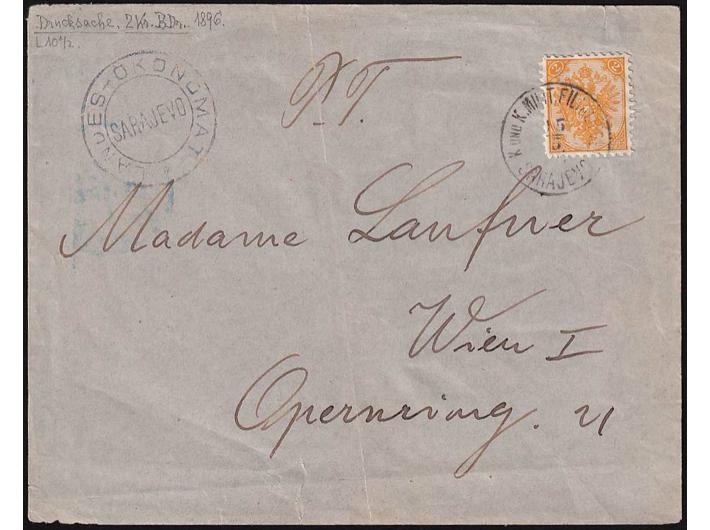 Drucksache. 2 Kr. BDr. 1896.
L 10½.
LANDES-ÖKONOMAT
SARAJEVO
P.T.
2 2
K. UND K. MILIT.
SARAJEVO
Madame Laufner
Wien I
Opernring.